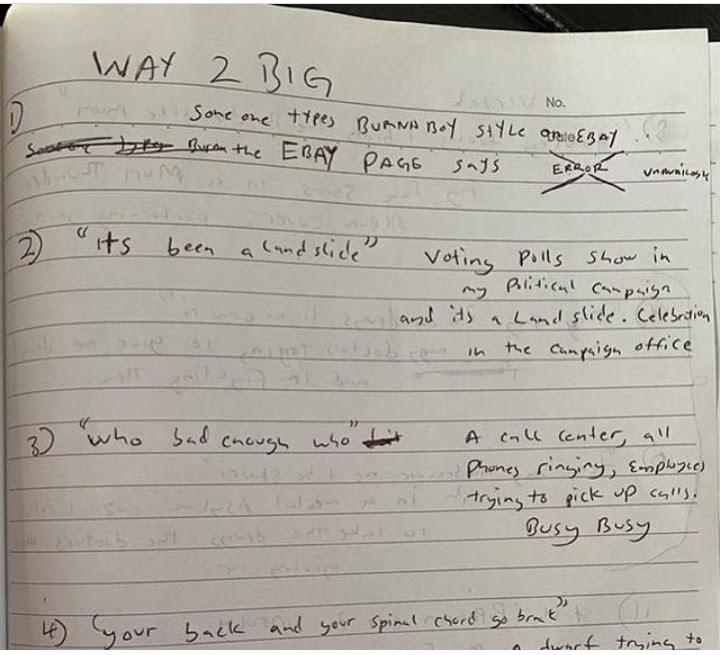 WAY 2 BIG
No.
1) Some one types BURNABOY STYLE on EBAY ..
But on the EBAY PAGE says ERROR
2) "its been a landslide" Voting Polls show in
my Political Campaign
and its a Land slide. Celebration
in the campaign office
3) "who bad enough who" A call center, all
Phones ringing, Employees
trying to pick up calls.
Busy Busy
4) "your back and your spinal chord go break"
a dwarf trying to